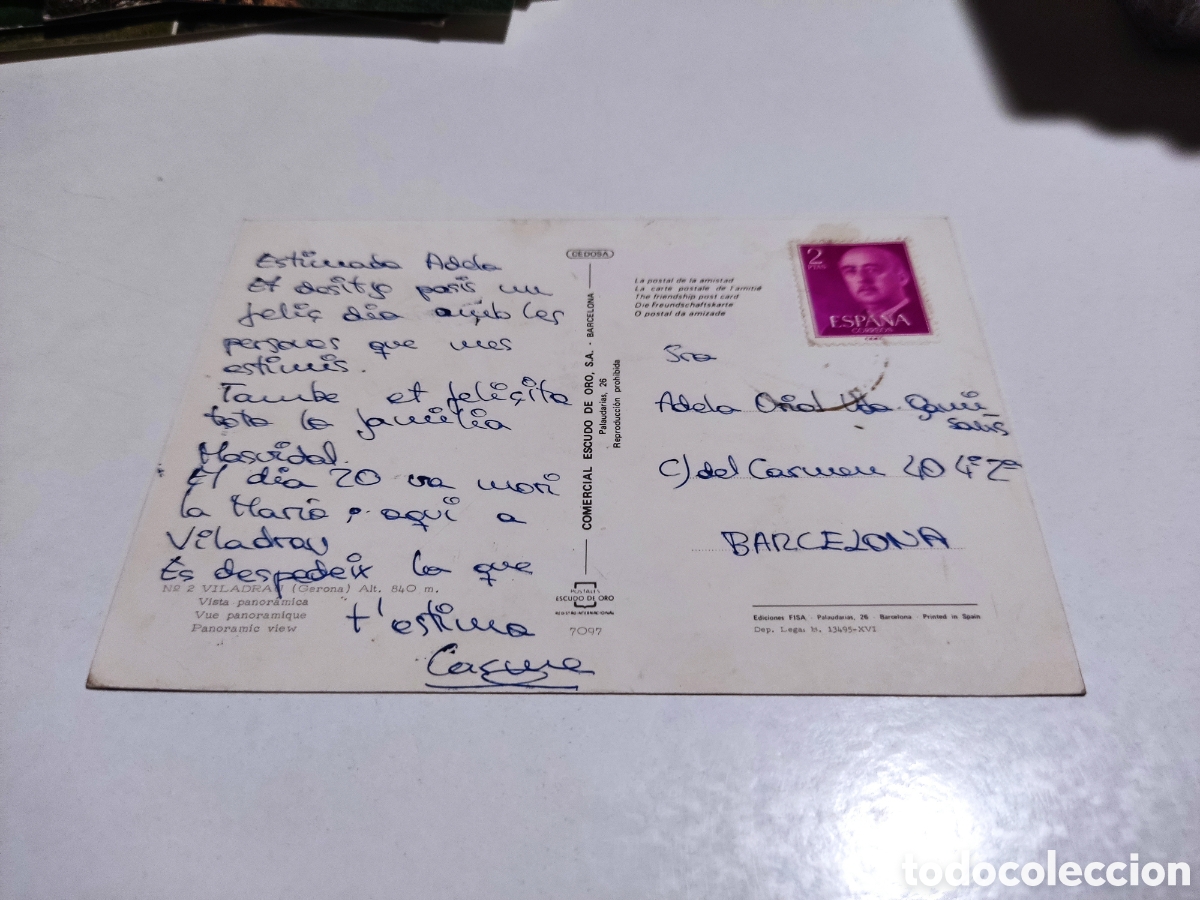 Estimada Adela
Et dositjo pasis un
feliç dia amb les
persones que mes
estimis.
Tambe et felicita
tota la familia
Masvidal.
El dia 20 va mori
la Maria; aqui a
Viladrau
Es despedeix la que
t'estima
Carme
Nº 2 VILADRAU (Gerona) Alt. 840 m.
Vista panorámica
Vue panoramique
Panoramic view
CEDOSA
COMERCIAL ESCUDO DE ORO, S.A. - BARCELONA
Palaudarias, 26
Reproducción prohibida
POSTALES
ESCUDO DE ORO
7097
La postal de la amistad
La carte postale de l'amitié
The friendship post card
Die Freundschaftskarte
O postal da amizade
2
PTAS
ESPAÑA
CORREOS
Sra
Adela Oriol
C/ del Carmen 40 4º 2ª
BARCELONA
Ediciones FISA - Palaudarias, 26 - Barcelona - Printed in Spain
Dep. Lega. B. 13495-XVI
todocoleccion